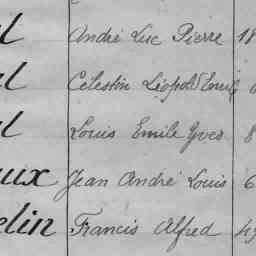 André Luc Pierre 18
Célestin Léopold Emile
Louis Emile Yves 8
ux Jean André Louis 6
elin Francis Alfred 49